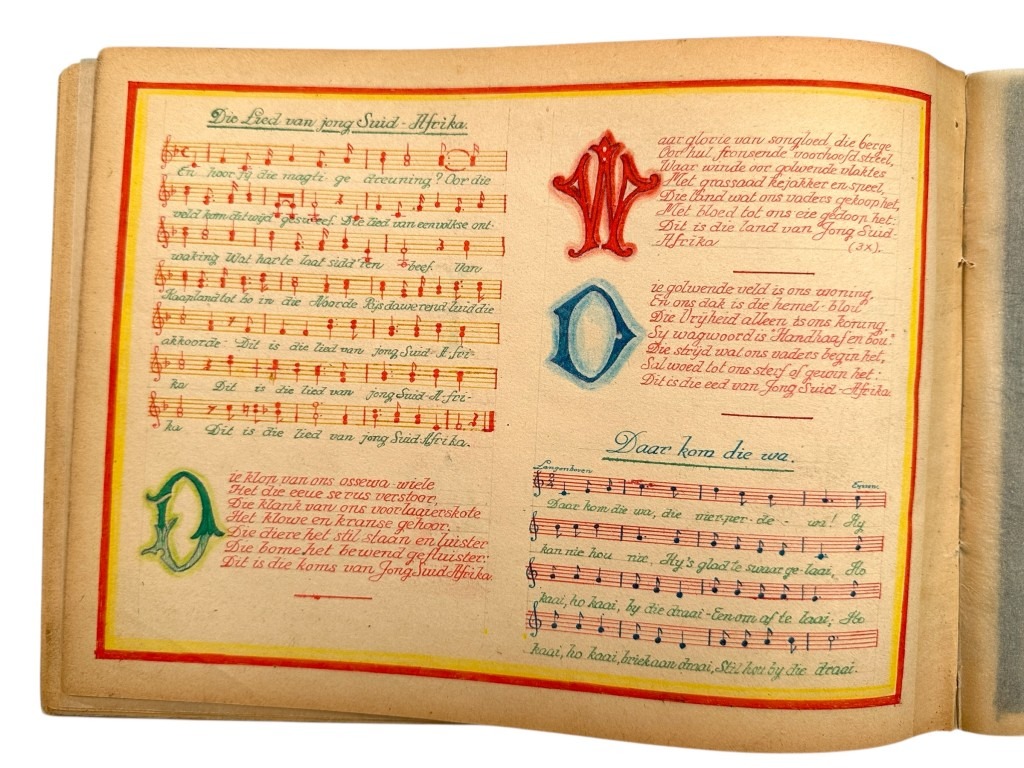 Die Lied van jong Suid-Afrika.
En hoor jy die magti-ge dreuning? Oor die
veld kom dit wyd gesweef. Die lied van een volkse ont-
waking Wat harte laat sidd'ren beef. Van
Kaapland tot bo in die Noorde Rys dawerend luid die
akkoorde: Dit is die lied van jong Suid-A-fri-
ka Dit is die lied van jong Suid-A-fri-
ka Dit is die lied van jong Suid-Afrika.
Die klop van ons ossewa-wiele
Het die eeue se rus verstoor,
Die klank van ons voorlaaierskote
Het klowe en kranse gehoor;
Die diere het stil staan en luister
Die bome het bewend gefluister:
Dit is die koms van Jong Suid Afrika.
Waar glorie van songloed die berge
Oor hul fronsende voorhoofd streel,
Waar winde oor golwende vlaktes
Met grassaad kejakker en speel,
Die land wat ons vaders gekoop het,
Met bloed tot ons eie gedoop het:
Dit is die land van Jong Suid-
Afrika (3x).
Die golwende veld is ons woning,
En ons dak is die hemel-blou
Die Vryheid alleen is ons koning.
Sy wagwoord is "Handhaaf en bou."
Die stryd wat ons vaders begin het,
Sal woed tot ons sterf of gewin het:
Dit is die eed van Jong Suid-Afrika.
Daar kom die wa.
Langenhoven
Daar kom die wa, die vier-per-de - wa! Hy
kan nie hou nie, Hy's glad te swaar ge-laai, Ho
kaai, ho kaai, by die draai-Een om af te laai; Ho
kaai, ho kaai, briek aan draai, Stil hou by die draai.